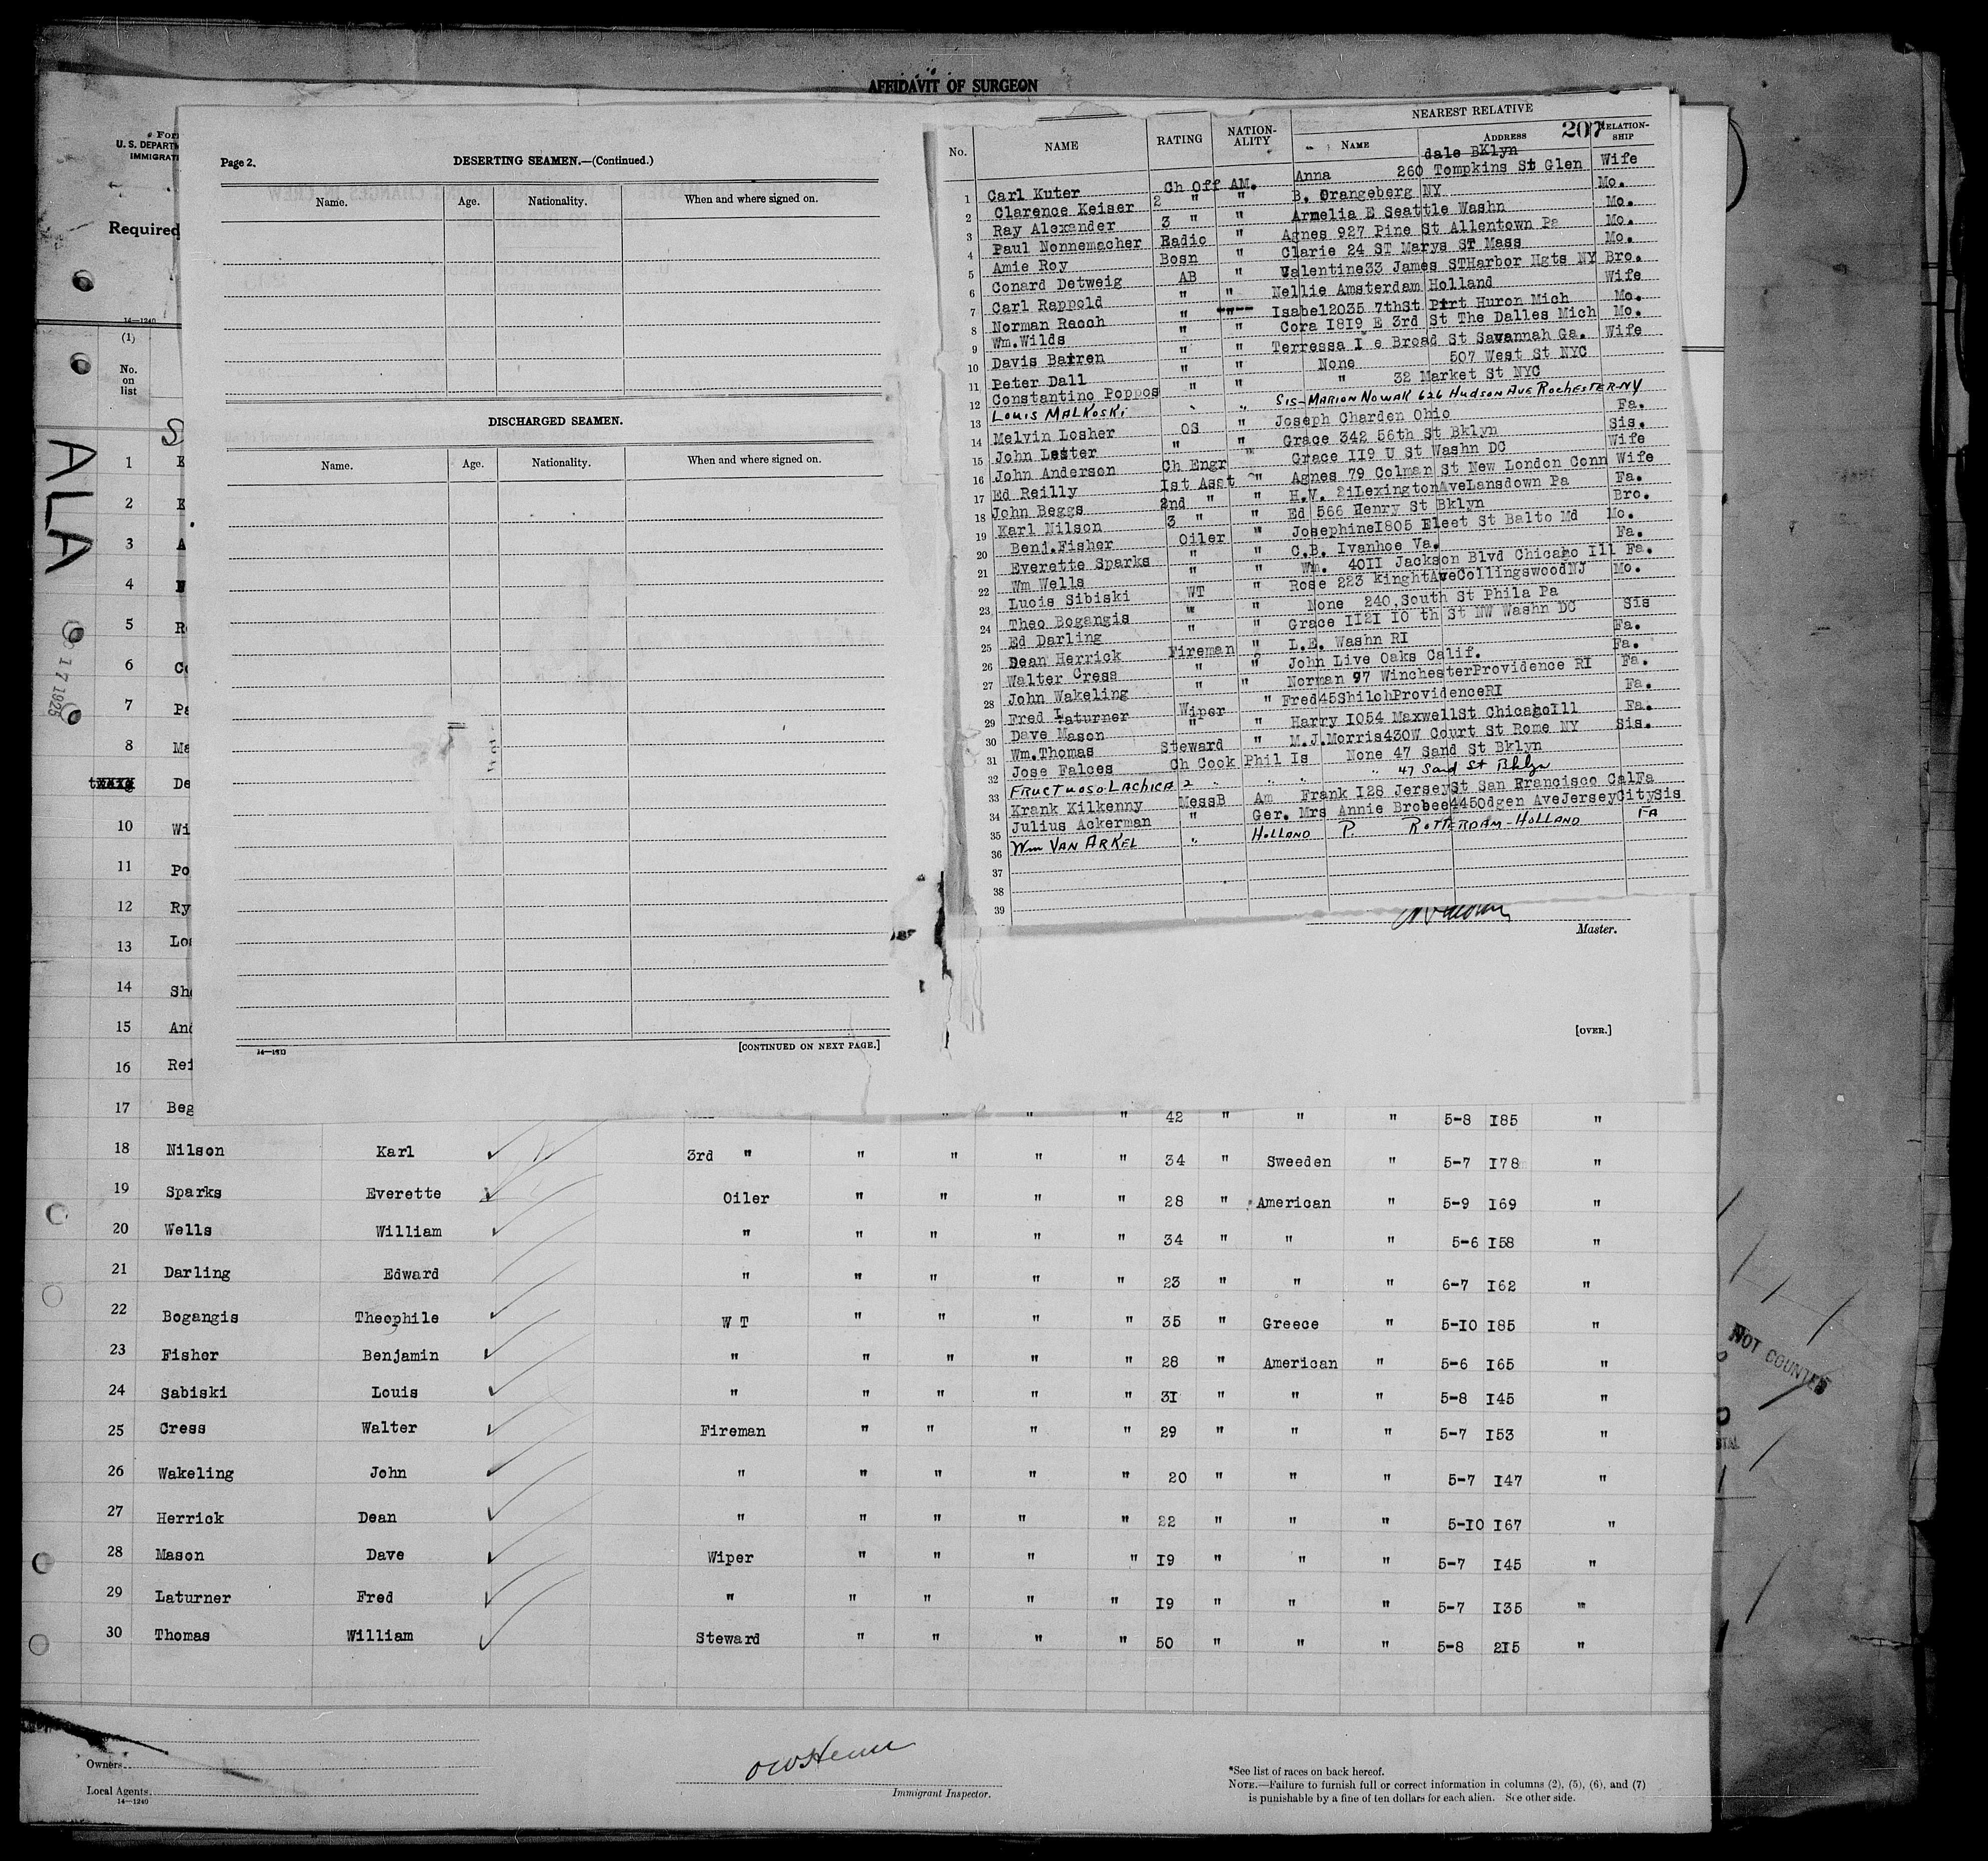 AFFIDAVIT OF SURGEON
U. S. DEPARTM
IMMIGRATI
Required
14—1240
(1)
No.
on
list
ALA
17 1925
Page 2.
DESERTING SEAMEN.—(Continued.)
Name. Age. Nationality. When and where signed on.
DISCHARGED SEAMEN.
Name. Age. Nationality. When and where signed on.
[CONTINUED ON NEXT PAGE.]
NEAREST RELATIVE
207
No. NAME RATING NATION-ALITY NAME ADDRESS RELATION-SHIP
dale BKlyn
1 Carl Kuter Ch Off AM. Anna 260 Tompkins St Glen Wife
2 Clarence Keiser 2 " " B. Orangeberg NY Mo.
3 Ray Alexander 3 " " Armelia E Seattle Washn Mo.
4 Paul Nonnemacher Radio " Agnes 927 Pine St Allentown Pa Mo.
5 Amie Roy Bosn " Clarie 24 ST Marys ST Mass Mo.
6 Conard Detweig AB " Valentine33 James STHarbor Hgts NY Bro.
7 Carl Rappold " " Nellie Amsterdam Holland Wife
8 Norman Raoch " " Isabel2035 7thSt Port Huron Mich Mo.
9 Wm.Wilds " " Cora I8I9 E 3rd St The Dalles Mich Mo.
10 Davis Barren " " Terressa I e Broad St Savannah Ga. Wife
11 Peter Dall " " None 507 West St NYC
12 Constantino Poppos " " " 32 Market St NYC
13 LOUIS MALKOSKI " " SIS-MARION NOWAK 626 HUDSON AVE ROCHESTER-NY
14 Melvin Losher OS " Joseph Charden Ohio Fa.
15 John Lester " " Grace 342 56th St Bklyn Sis.
16 John Anderson Ch Engr " Grace II9 U St Washn DC Wife
17 Ed Reilly Ist Asst " Agnes 79 Colman St New London Conn Wife
18 John Beggs 2nd " " H.V. 21LexingtonAveLansdown Pa Fa.
19 Karl Nilson 3 " " Ed 566 Henry St Bklyn Bro.
20 Benj.Fisher Oiler " JosephineI805 Fleet St Balto Md Mo.
21 Everette Sparks " " C.B. Ivanhoe Va. Fa.
22 Wm Wells " " Wm. 40II Jackson Blvd Chicago Ill Fa.
23 Luois Sibiski WT " Rose 223 KinghtAveCollingswoodNJ Mo.
24 Theo Bogangis " " None 240 South St Phila Pa
25 Ed Darling " " Grace II2I I0 th St NW Washn DC Sis
26 Dean Herrick Fireman " L.E. Washn RI Fa.
27 Walter Cress " " John Live Oaks Calif. Fa.
28 John Wakeling " " Norman 97 WinchesterProvidence RI Fa.
29 Fred Laturner Wiper " Fred45ShilohProvidenceRI Fa.
30 Dave Mason " " Harry I054 MaxwellSt ChicagoIll Fa.
31 Wm.Thomas Steward " M.J.Morris430W Court St Rome NY Sis.
32 Jose Falces Ch Cook Phil Is None 47 Sand St Bklyn
33 FRUCTUOSO LACHICA 2 " " " " 47 Sand St Bklyn
34 Krank Kilkenny MessB Am Frank I28 JerseySt San Francisco CalFa
35 Julius Ackerman " Ger. Mrs Annie Brobee445Odgen AveJerseyCitySis
36 Wm VAN ARKEL " HOLLAND P. ROTTERDAM-HOLLAND FA
37
38
39
Master.
[OVER.]
1 K
2 K
3 A
4
5 Ro
6 Co
7 Pa
8 Ma
De
10 Wi
11 Po
12 Ry
13 Los
14 Sho
15 And
16 Rei
17 Beg " " " 42 " " " 5-8 I85 "
18 Nilson Karl 3rd " " " " " 34 " Sweeden " 5-7 I78 "
19 Sparks Everette Oiler " " " " 28 " American " 5-9 I69 "
20 Wells William " " " " " 34 " " " 5-6 I58 "
21 Darling Edward " " " " " 23 " " " 6-7 I62 "
22 Bogangis Theophile W T " " " " 35 " Greece " 5-I0 I85 "
23 Fisher Benjamin " " " " " 28 " American " 5-6 I65 "
24 Sabiski Louis " " " " " 3I " " " 5-8 I45 "
25 Cress Walter Fireman " " " " 29 " " " 5-7 I53 "
26 Wakeling John " " " " " 20 " " " 5-7 I47 "
27 Herrick Dean " " " " " 22 " " " 5-I0 I67 "
28 Mason Dave Wiper " " " " I9 " " " 5-7 I45 "
29 Laturner Fred " " " " " I9 " " " 5-7 I35 "
30 Thomas William Steward " " " " 50 " " " 5-8 2I5 "
NOT COUNTED
Owners
Local Agents
14—1240
Immigrant Inspector.
*See list of races on back hereof.
NOTE.—Failure to furnish full or correct information in columns (2), (5), (6), and (7)
is punishable by a fine of ten dollars for each alien. See other side.